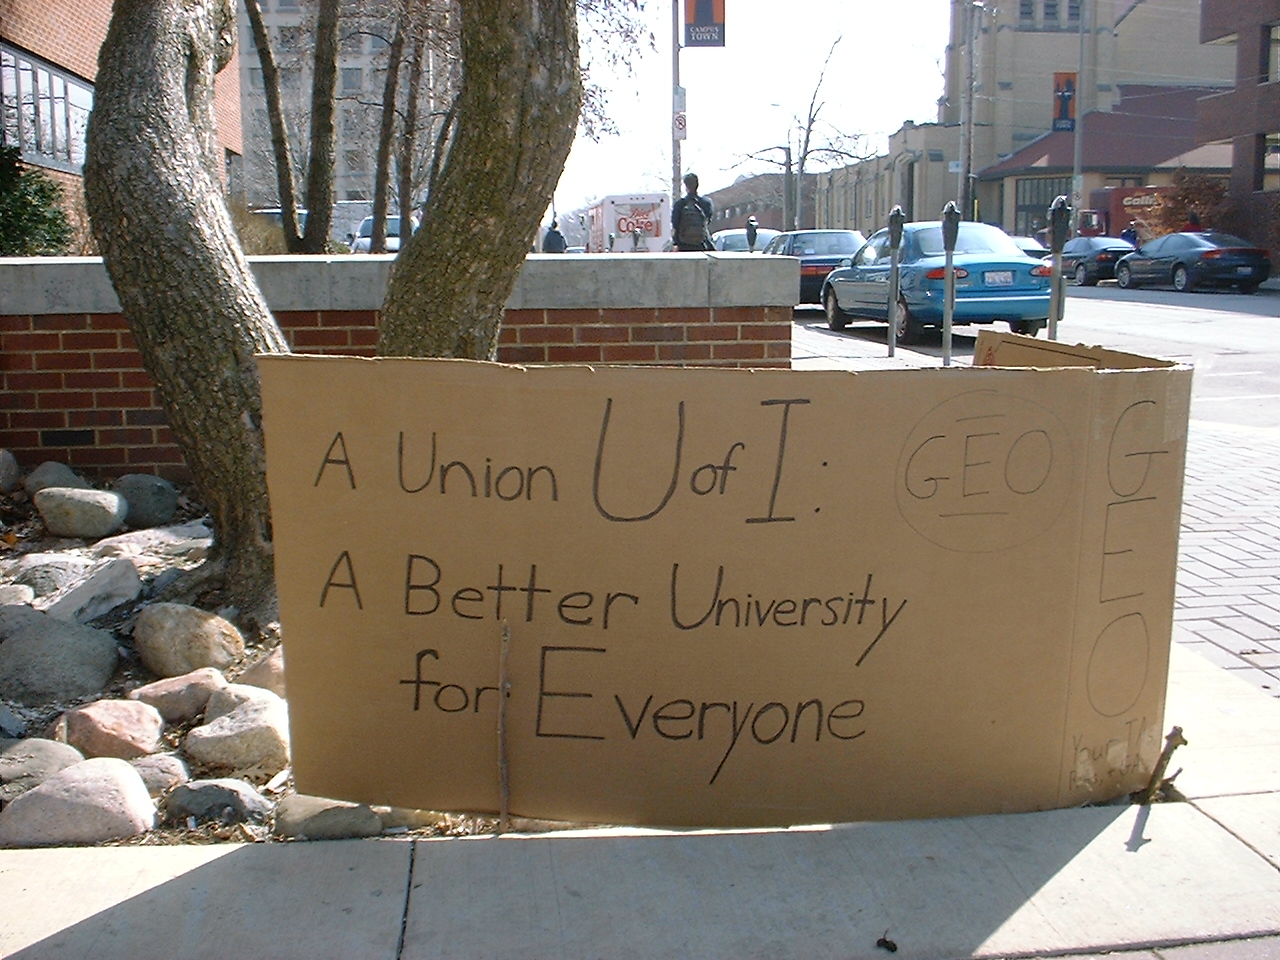 CAMPUS
TOWN
Diet
Coke
A Union U of I:
GEO
A Better University
for Everyone
GEO
Your TA's